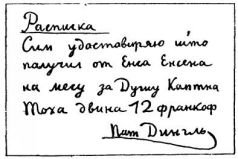 Расписка
Сим удаставиряю што
получил от Енса Енсена
на месу за Душу Каптна
Тоха двина 12 франкаф
Пат Дингль